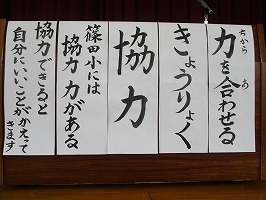 力を合わせる
ちから
あ
きょうりょく
協力
篠田小には
協力力がある
協力できると
自分にいいことがかえって
きます